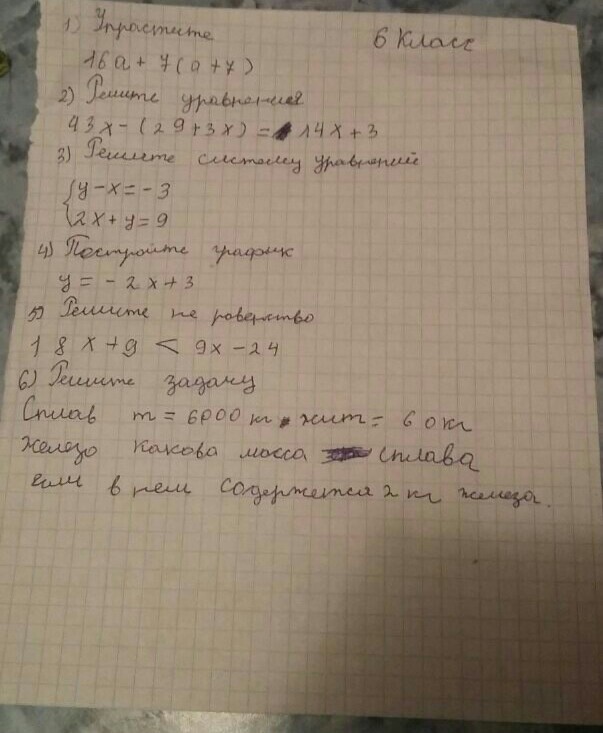 6 Класс
1) Упрастите
16a + 7(a+7)
2) Решите уравнения
43x-(29+3x) = 14x+3
3) Решите систему уравнений
y-x=-3
2x+y=9
4) Постройте график
y = -2x+3
5) Решите не равенство
18x+9 < 9x-24
6) Решите задачу
Сплав m = 6000 кг = 60 кг
железо какова масса сплава
если в нем содержется 2 кг железа.